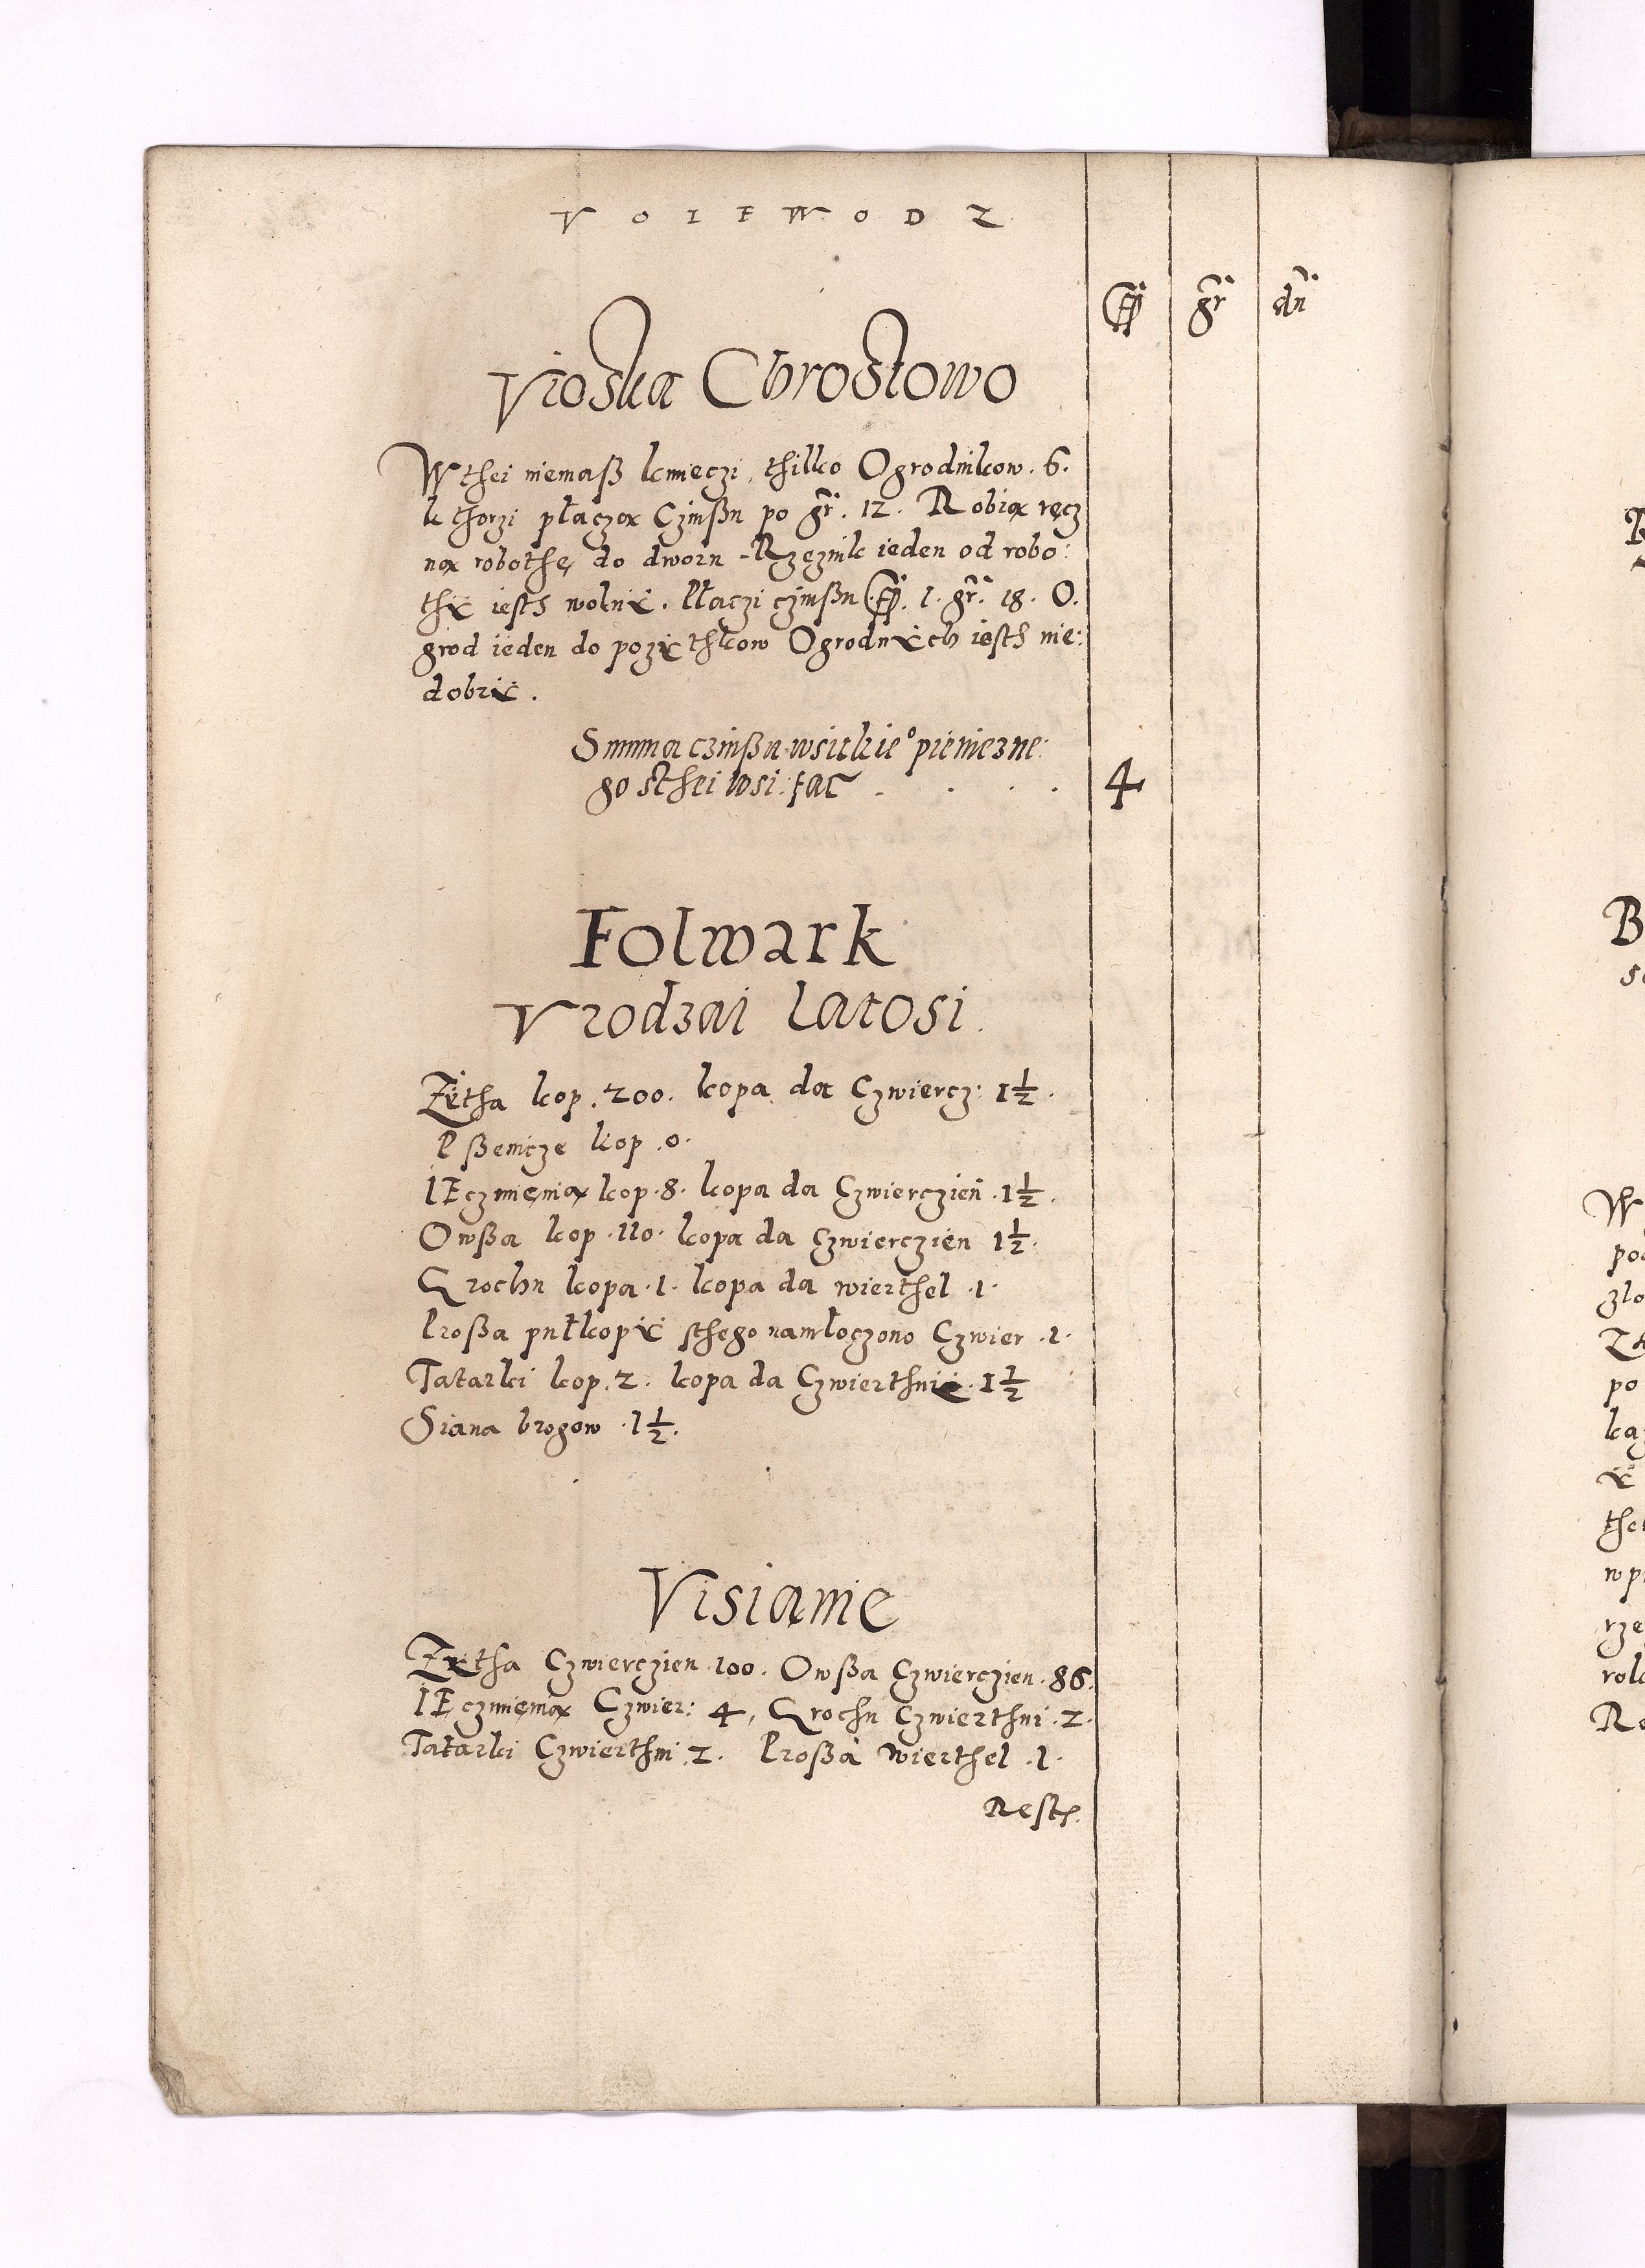 VOIEWODZ
fl gr dn
Vioska Chrostowo
W thei niemaß kmieczi, thilko Ogrodnikow . 6 .
kthorzi płaczą Czinßu po gr . 12 . Robią ręcz
ną robothę do dworu - Rzeznik ieden od robo:
thÿ iesth wolnÿ . Płaczi czinßu fl . 1 . gr . 18 . O.
grod ieden do pozÿthkow Ogrodnÿch iesth nie:
dobrÿ .
Summa czinßu wsitkie° pieniezne:
go sthei wsi fac . . . . 4
Folwark
Vrodzai latosi .
Zÿtha kop . 200 . kopa da Czwiercz: 1 1/2 .
Pßenicze kop . 0 .
IEczmięnią kop . 8 . kopa da Czwierczień . 1 1/2 .
Owßa kop . 110 . kopa da Czwierczień 1 1/2 .
Grochu kopa . 1 . kopa da wierthel . 1 .
Proßa pułkopÿ sthego namłoczono Czwier . 1 .
Tatarki kop . 2 . kopa da Czwierthnię . 1 1/2
Siana brogow . 1 1/2 .
Visianie
Zÿtha Czwierczien . 100 . Owßa Czwierczien . 86 .
IEczmięnią Czwier: 4 , Grochu Czwierthni . 2 .
Tatarki Czwierthni . 2 . Proßa wierthel . 1 .
Resth